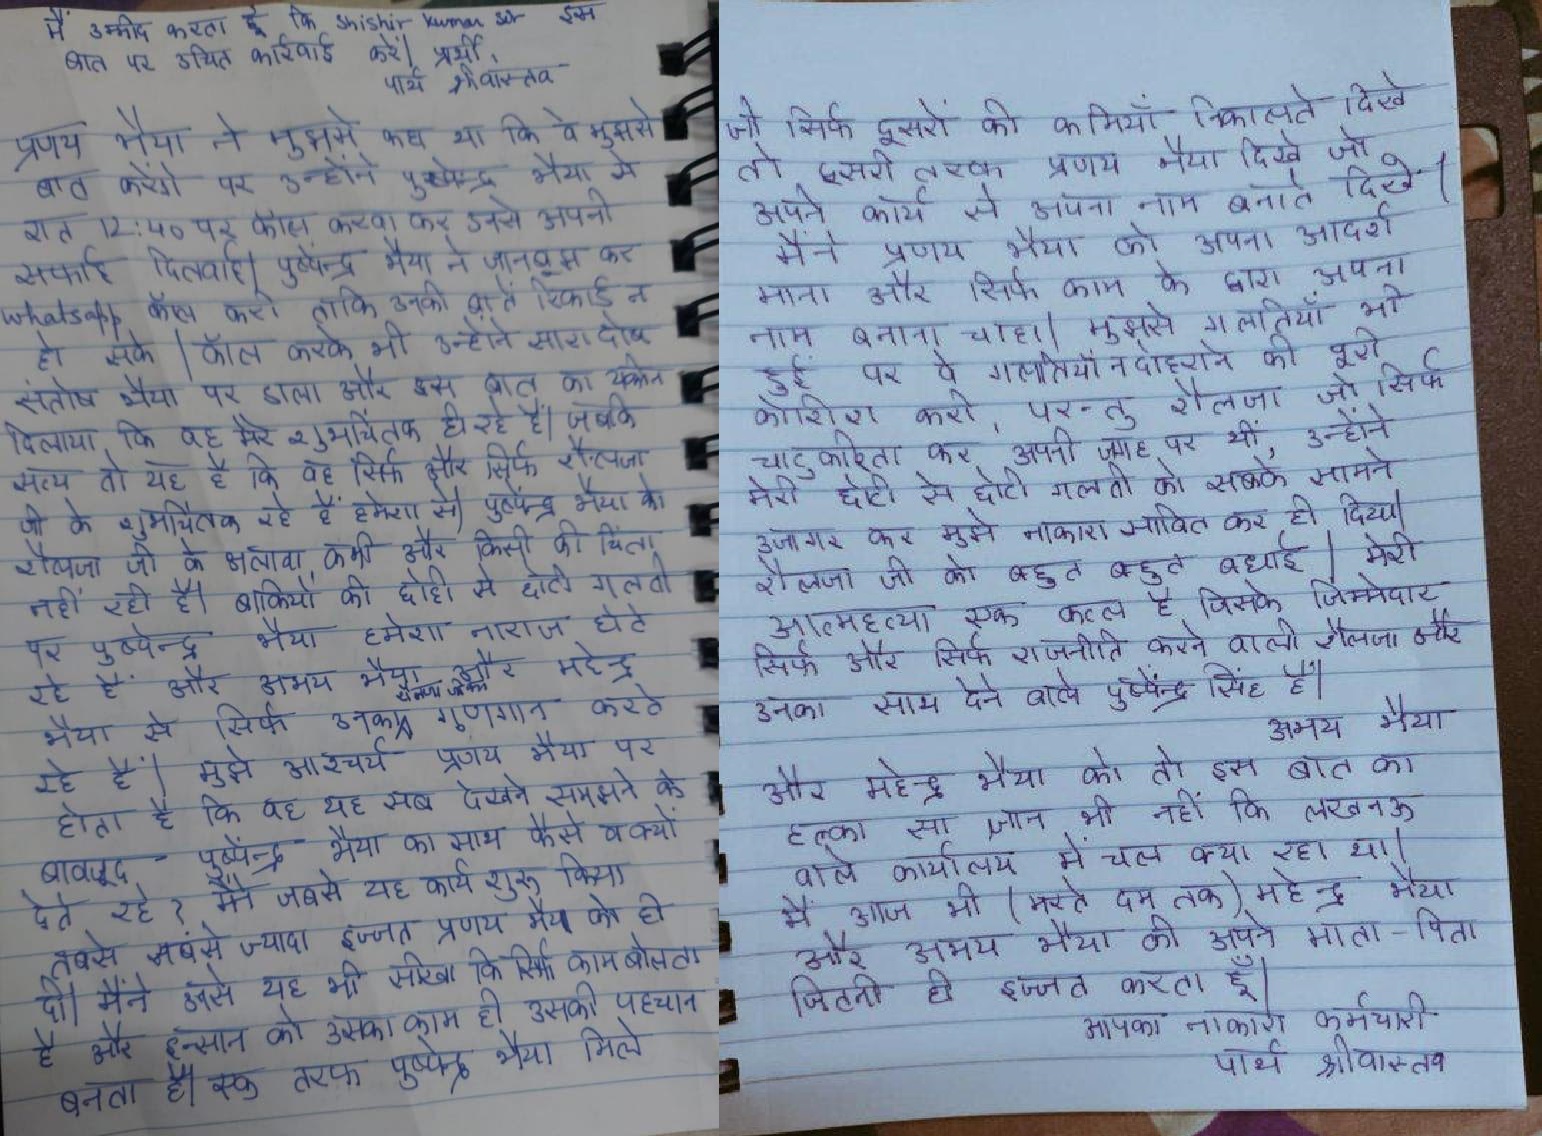 मैं उम्मीद करता हूँ कि shishir kumar sir इस
बात पर उचित कार्रवाई करें| प्रार्थी,
पार्थ श्रीवास्तव
प्रणय भैया ने मुझसे कहा था कि वे मुझसे
बात करेंगे पर उन्होंने पुष्पेन्द्र भैया से
रात 12:40 पर कॉल करवा कर उनसे अपनी
सफाई दिलवाई| पुष्पेन्द्र भैया ने जानबूझ कर
whatsapp कॉल करी ताकि उनकी बातें रिकार्ड न
हो सके| कॉल करके भी उन्होंने सारा दोष
संतोष भैया पर डाला और इस बात का यकीन
दिलाया कि वह मेरे शुभचिंतक ही रहे हैं| जबकि
सत्य तो यह है कि वह सिर्फ और सिर्फ शैलजा
जी के शुभचिंतक रहे हैं हमेशा से| पुष्पेन्द्र भैया को
शैलजा जी के अलावा कभी और किसी की चिंता
नहीं रही है| बाकियों की छोटी से छोटी गलती
पर पुष्पेन्द्र भैया हमेशा नाराज होते
रहे हैं और अभय भैया और महेन्द्र
भैया से सिर्फ शैलजा जी का गुणगान करते
रहे हैं| मुझे आश्चर्य प्रणय भैया पर
होता है कि वह यह सब देखने समझने के
बावजूद पुष्पेन्द्र भैया का साथ कैसे व क्यों
देते रहे? मैंने जबसे यह कार्य शुरू किया
तबसे सबसे ज्यादा इज्जत प्रणय भैया को ही
दी| मैंने उनसे यह भी सीखा कि सिर्फ काम बोलता
है और इन्सान को उसका काम ही उसकी पहचान
बनता है| एक तरफ पुष्पेन्द्र भैया मिले
जो सिर्फ दूसरों की कमियाँ निकालते दिखे
तो दूसरी तरफ प्रणय भैया दिखे जो
अपने कार्य से अपना नाम बनाते दिखे|
मैंने प्रणय भैया को अपना आदर्श
माना और सिर्फ काम के द्वारा अपना
नाम बनाना चाहा| मुझसे गलतियाँ भी
हुईं पर वे गलतियाँ न दोहराने की पूरी
कोशिश करी, परन्तु शैलजा जो सिर्फ
चाटुकारिता कर अपनी जगह पर थीं, उन्होंने
मेरी छोटी से छोटी गलती को सबके सामने
उजागर कर मुझे नाकारा साबित कर ही दिया|
शैलजा जी को बहुत बहुत बधाई| मेरी
आत्महत्या एक कत्ल है जिसके जिम्मेदार
सिर्फ और सिर्फ राजनीति करने वाली शैलजा और
उनका साथ देने वाले पुष्पेन्द्र सिंह हैं|
अभय भैया
और महेन्द्र भैया को तो इस बात का
हल्का सा ज्ञान भी नहीं कि लखनऊ
वाले कार्यालय में चल क्या रहा था|
मैं आज भी (मरते दम तक) महेन्द्र भैया
और अभय भैया की अपने माता-पिता
जितनी ही इज्जत करता हूँ|
आपका नाकारा कर्मचारी
पार्थ श्रीवास्तव